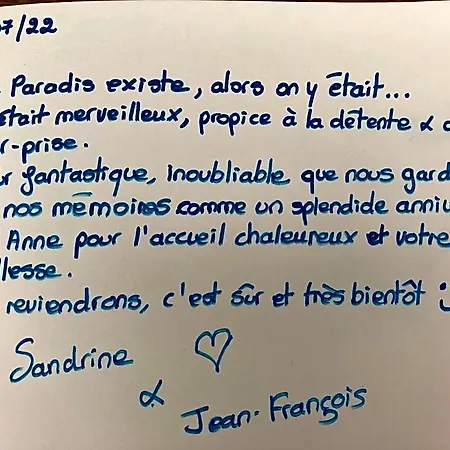 07/22
Paradis existe, alors on y était...
était merveilleux, propice à la détente &
r-prise.
r fantastique, inoubliable que nous gard
nos mémoires comme un splendide anniv
Anne pour l'accueil chaleureux et votre
llesse.
reviendrons, c'est sûr et très bientôt :)
Sandrine ♡
&
Jean-François